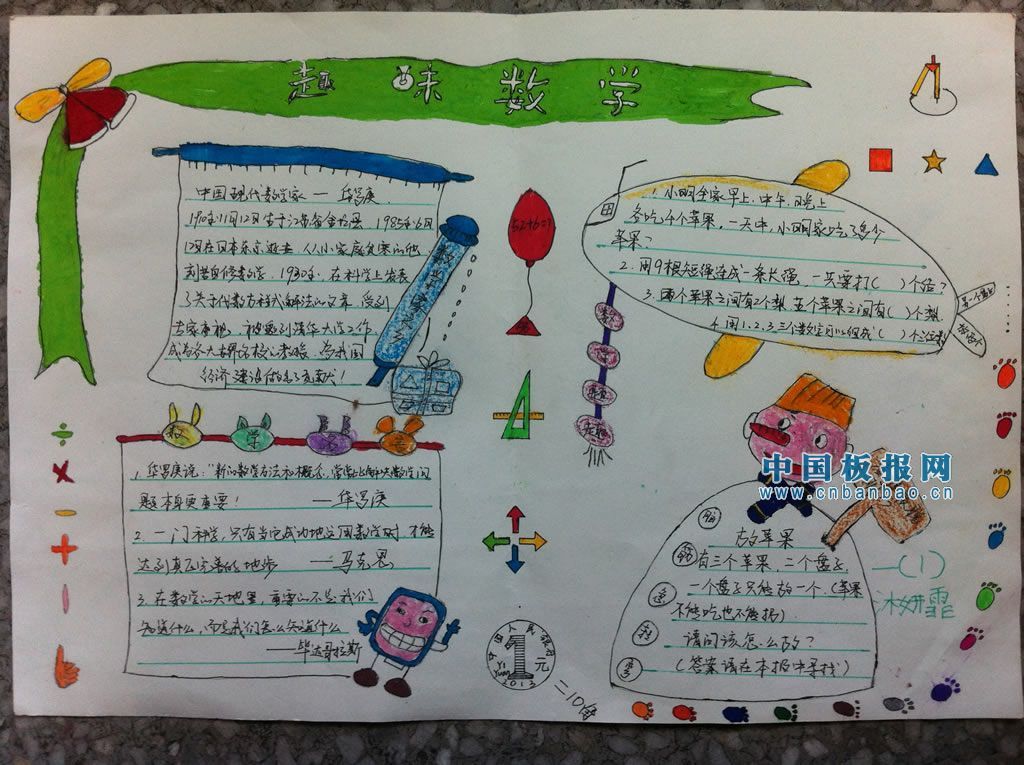 趣味数学
中国现代数学家 — 华罗庚
1910年11月12日生于江苏省金坛县，1985年6月
12日在日本东京逝世，
刻苦自修数学，1930年，在科学上发表
了关于代数方程式解法的文章，受到
专家重视，被邀到清华大学工作，
成为
经济建设做出了贡献！
52+6=?
1. 小明全家早上、中午、晚上
各吃4个苹果，一天中，小明家吃了多少
苹果？
2. 用9根短绳连成一条长绳，一共要打( )个结？
3. 两个苹果之间有2个梨，五个苹果之间有( )个梨
4. 用1、2、3三个数字可以组成( )个三位数
数学
1. 华罗庚说：“新的数学方法和概念，常常比解决数学问
题本身更重要！
——华罗庚
2. 一门科学，只有当它成功地运用数学时，才能
达到真正完善的地步 ——马克思
3. 在数学的天地里，重要的不是我们
知道什么，而是我们怎么知道什么
——毕达哥拉斯
中国人民银行
1元
Yi Yuan
2012
=10角
中国板报网
www.cnbanbao.cn
脑筋急转弯
放苹果
有三个苹果，二个盘子，
一个盘子只能放一个（苹果
不能吃也不能扔）
请问该怎么放？
（答案请在本报中寻找）
一(1)
沐妍霏